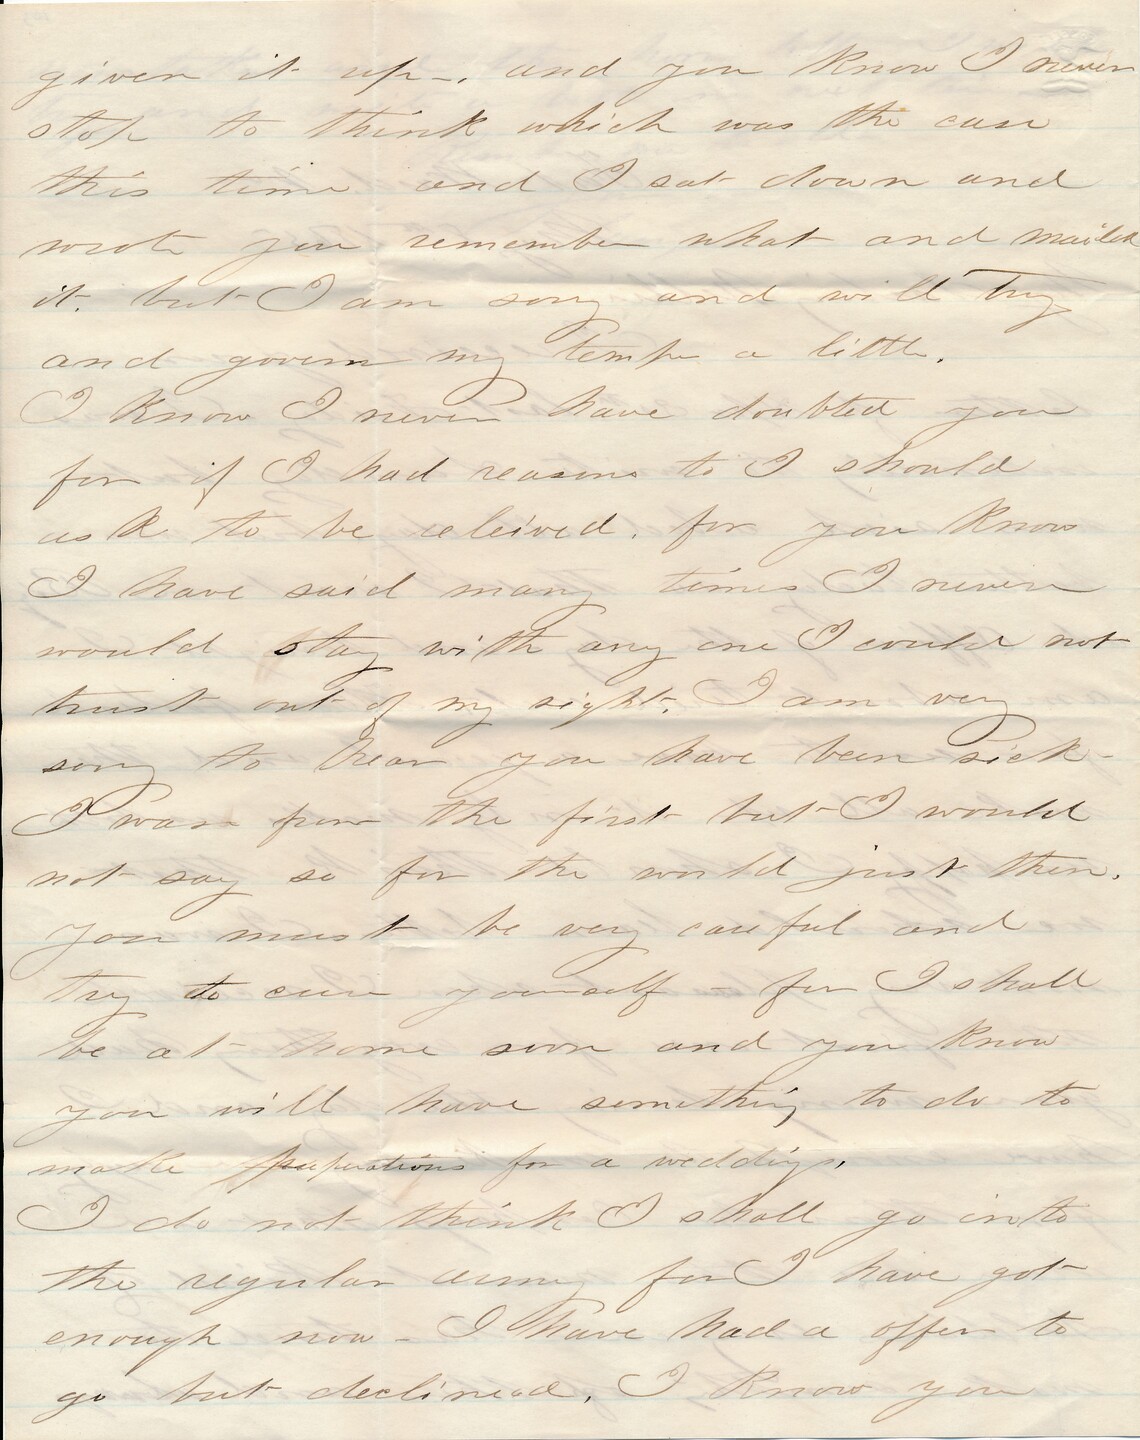 given it up-. and you know I never
stop to think which was the case
this time and I sat down and
wrote you remember what and mailed
it. but I am sory and will Try
and govern my temper a little.
I know I never have doubted you
for if I had reasons to I should
ask to be releived. for you know
I have said many times I never
would stay with any one I could not
trust out of my sight. I am very
sory to hear you have been sick-
I was from the first but I would
not say so for the world just then.
you must be very careful and
try to cure yourself - for I shall
be at home soon and you know
you will have something to do to
make preparations for a wedding.
I do not think I shall go into
the regular army for I have got
enough now - I have had a offer to
go but declined. I know you